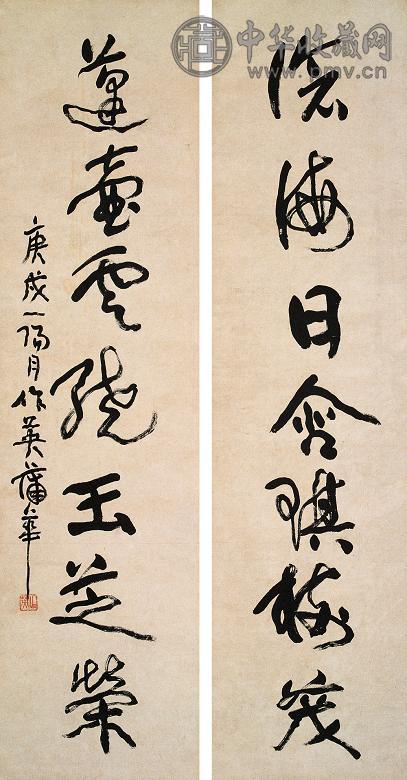 中华收藏网
www.pmv.cn
滄海日含琪樹茂
蓬壺雲繞玉芝榮
庚戌一陽月作英蒲華